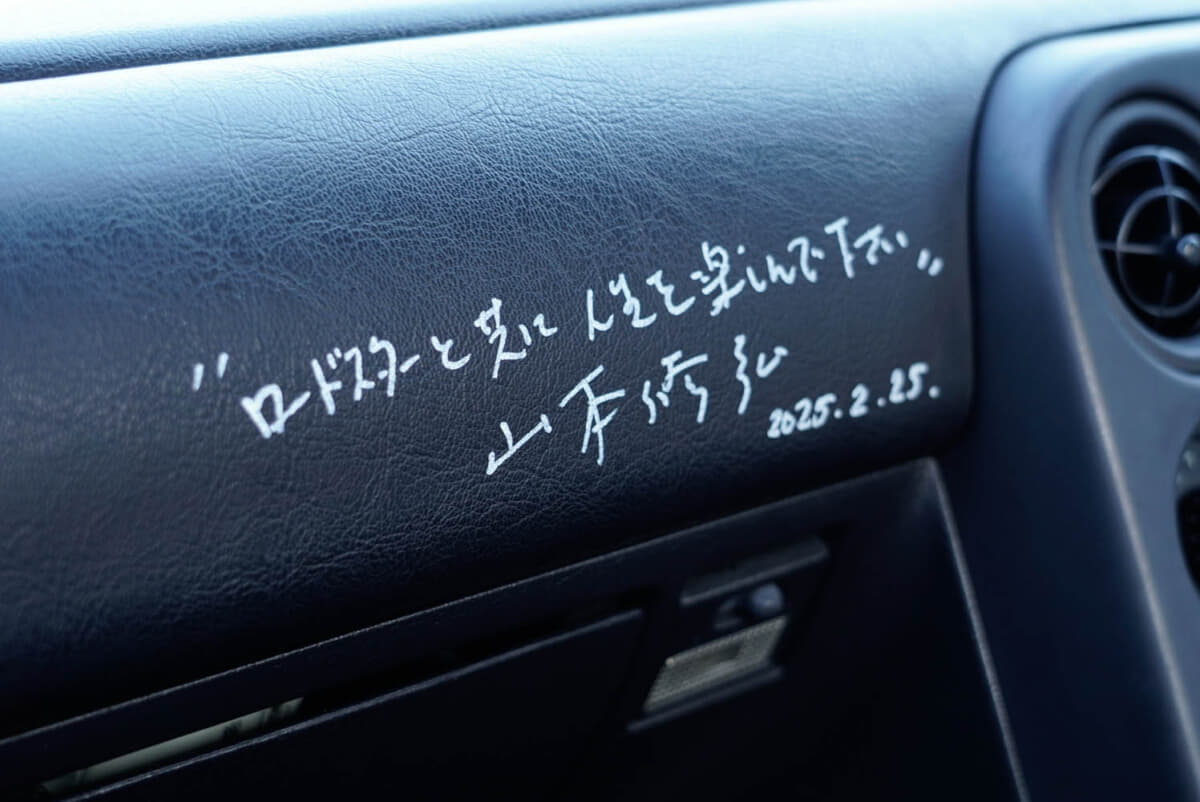 "ロードスターと共に人生を楽しんで下さい"
山本修弘
2025.2.25.